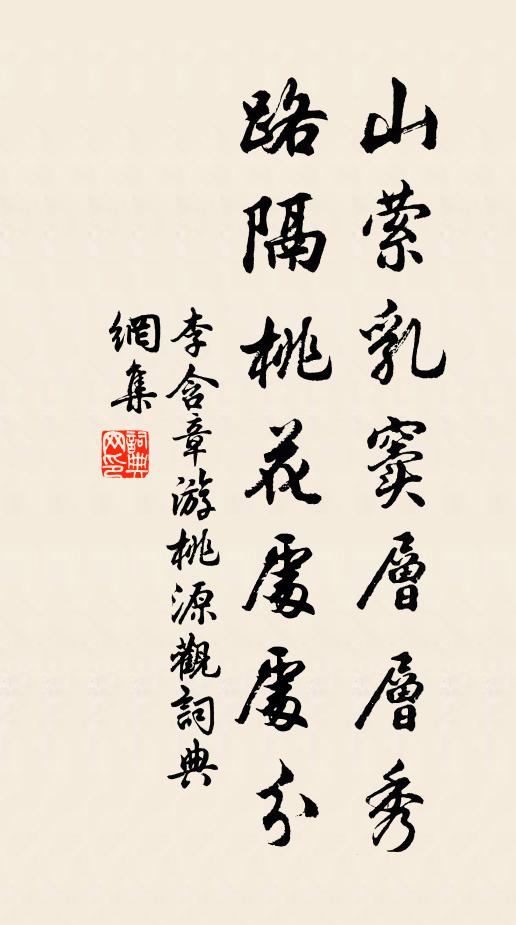 山萦乳竇層層秀
路隔桃花處處分
李含章游桃源觀詞典
網集
詞典
网印